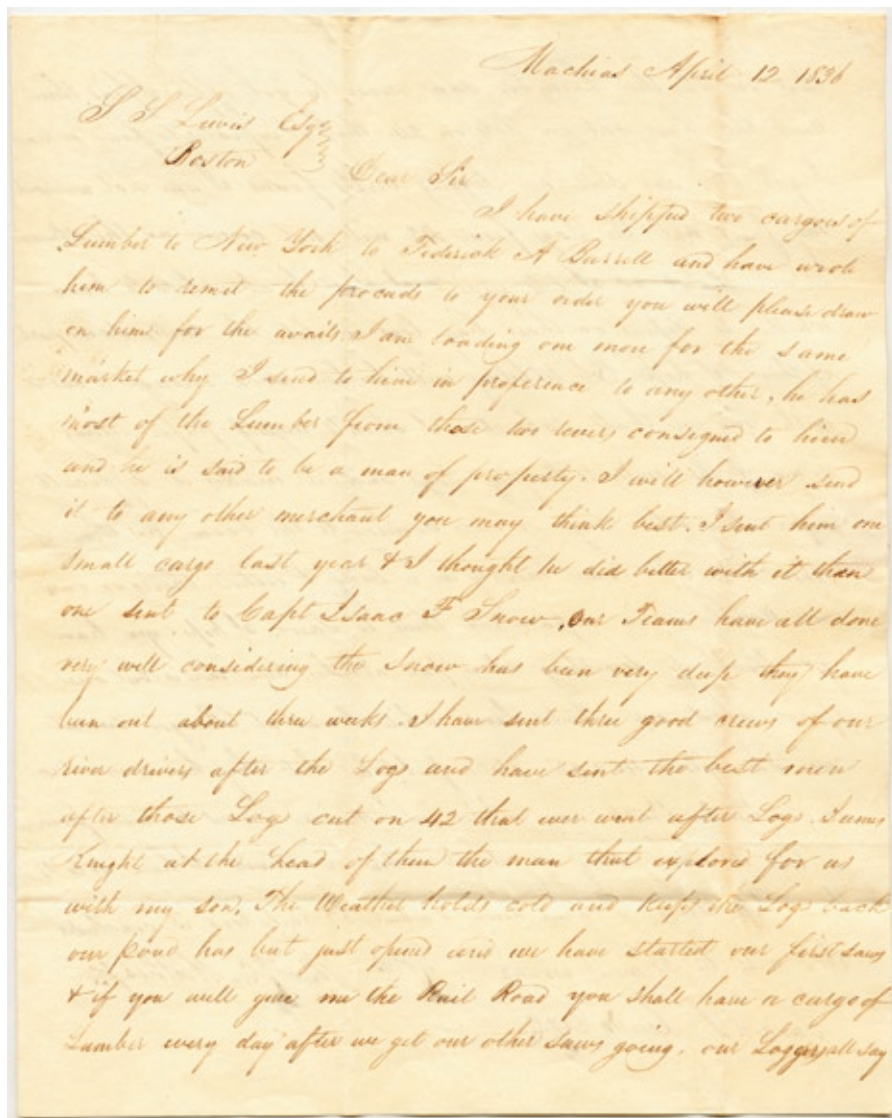 Machias April 12 1836
S S Lewis Esqr
Boston
Dear Sir
I have shipped two cargoes of
Lumber to New York to Federick A Burrell and have wrote
him to remet the proceuds to your order you will please draw
on him for the avails I am loading one more for the same
market why I send to him in preference to any other, he has
most of the Lumber from these two rivers consigned to him
and he is said to be a man of property. I will however send
it to any other merchant you may think best. I sent him one
small cargo last year & I thought he did better with it than
one sent to Capt Isaac F Snow, Our Teams have all done
very well considering the Snow has been very deep they have
been out about three weeks. I have sent three good crews of our
river drivers after the Logs and have sent the best men
after those Logs cut on 42 that ever went after Logs. James
at the head of them the man that explored for us
with my son. The Weather holds cold and keeps the Logs back
our pond has but just opened and we have started our first saws
& if you will give me the Rail Road you shall have a cargo of
Lumber every day after we get our other saws going. our Loggers all say